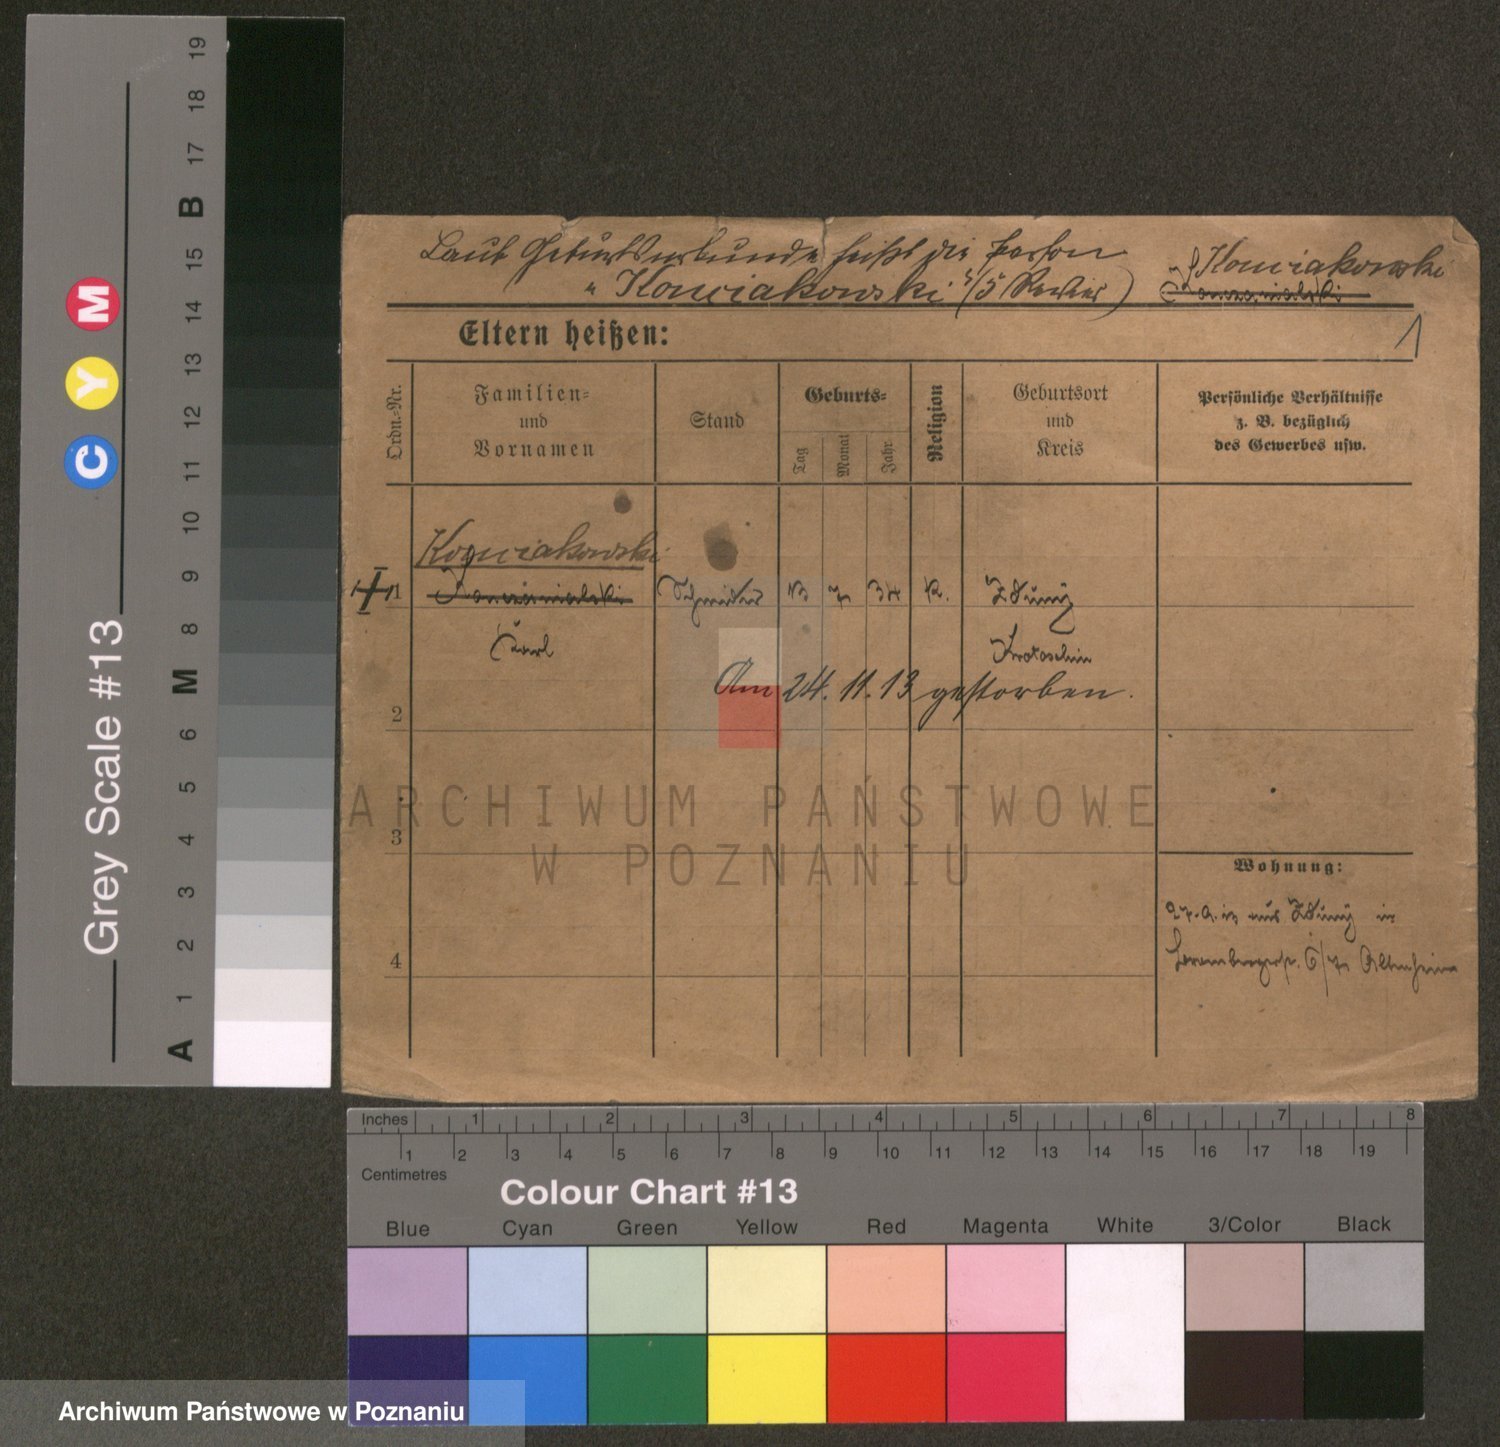 Laut Geburtsurkunde heißt die Person
"Konciakowski" (5 Revier)
Konciakowski
1
Eltern heißen:
Ordn.=Nr.
Familien=
und
Vornamen
Stand
Geburts=
Tag
Monat
Jahr
Religion
Geburtsort
und
Kreis
Persönliche Verhältnisse
z. B. bezüglich
des Gewerbes usw.
Konciakowski
1
Schneider
34
K.
Zduny
Karl
Krotoschin
Am 24. 11. 13 gestorben.
2
3
4
Wohnung:
aus Zduny in
6/7 Altenheim
ARCHIWUM PAŃSTWOWE
W POZNANIU
Grey Scale #13
C Y M
A 1 2 3 4 5 6 M 8 9 10 11 12 13 14 15 B 17 18 19
Inches 1 2 3 4 5 6 7 8
1 2 3 4 5 6 7 8 9 10 11 12 13 14 15 16 17 18 19
Centimetres
Colour Chart #13
Blue Cyan Green Yellow Red Magenta White 3/Color Black
Archiwum Państwowe w Poznaniu